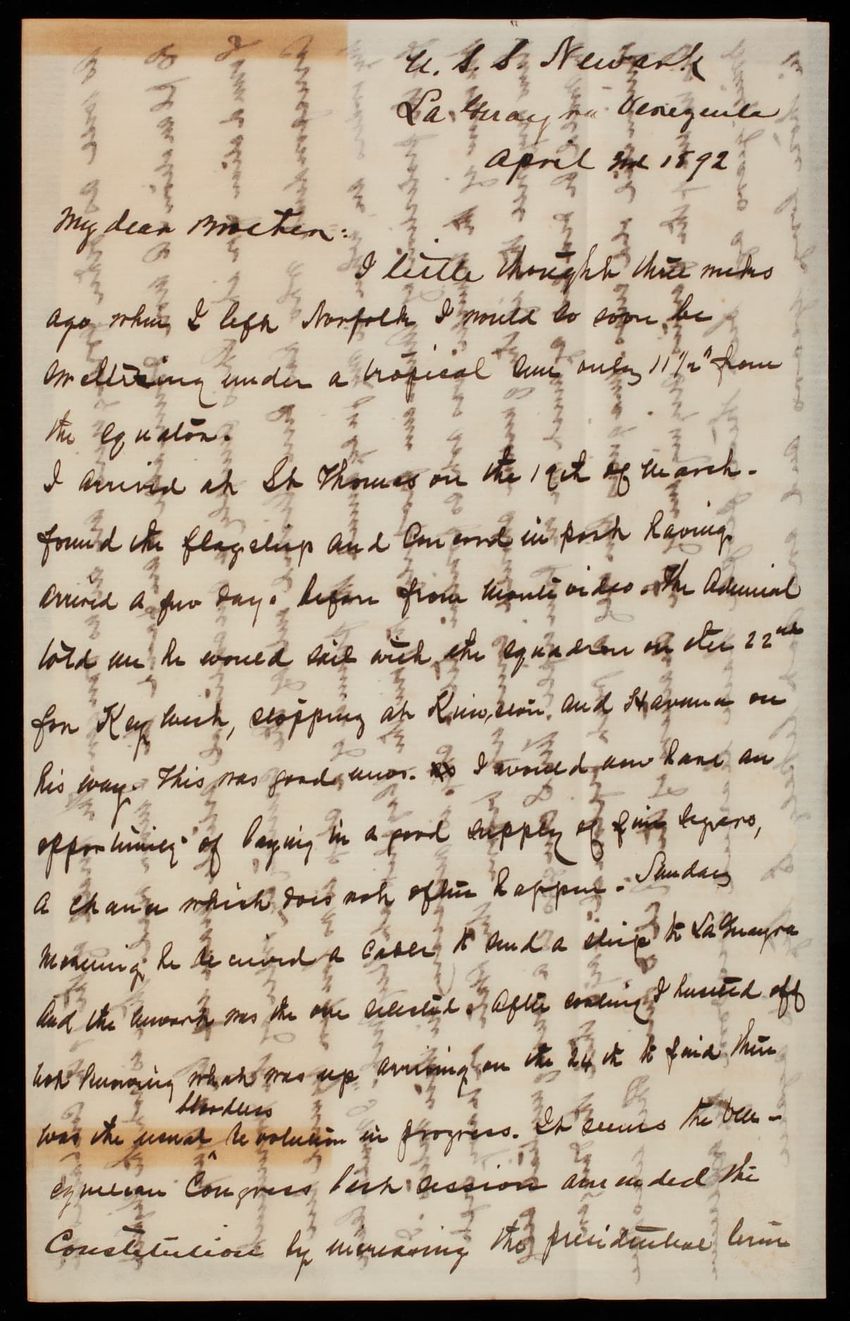 U. S. S. Newark
La Guayra Venezuela
April 2nd 1892
My dear Brother:
I little thought three weeks
ago when I left Norfolk I would so soon be
sweltering under a tropical sun only 11 1/2° from
the equator.
I arrived at St Thomas on the 19th of March.
found the flagship and Concord in port having
arrived a few days before from Montevideo. The Admiral
told me he would sail with the squadron on the 22nd
for Key West, stopping at Kingston and Havana on
his way. This was good news. I would now have an
opportunity of laying in a good supply of fine segars,
a chance which does not often happen. Sunday
morning he received a cable to send a ship to La Guayra
and the Newark was the one selected. After coaling I hustled off
not knowing what was up arriving on the 24th to find there
bloodless
was the usual ^ revolution in progress. It seems the Ven-
ezuelean Congress last session amended the
Constitution by increasing the presidential term